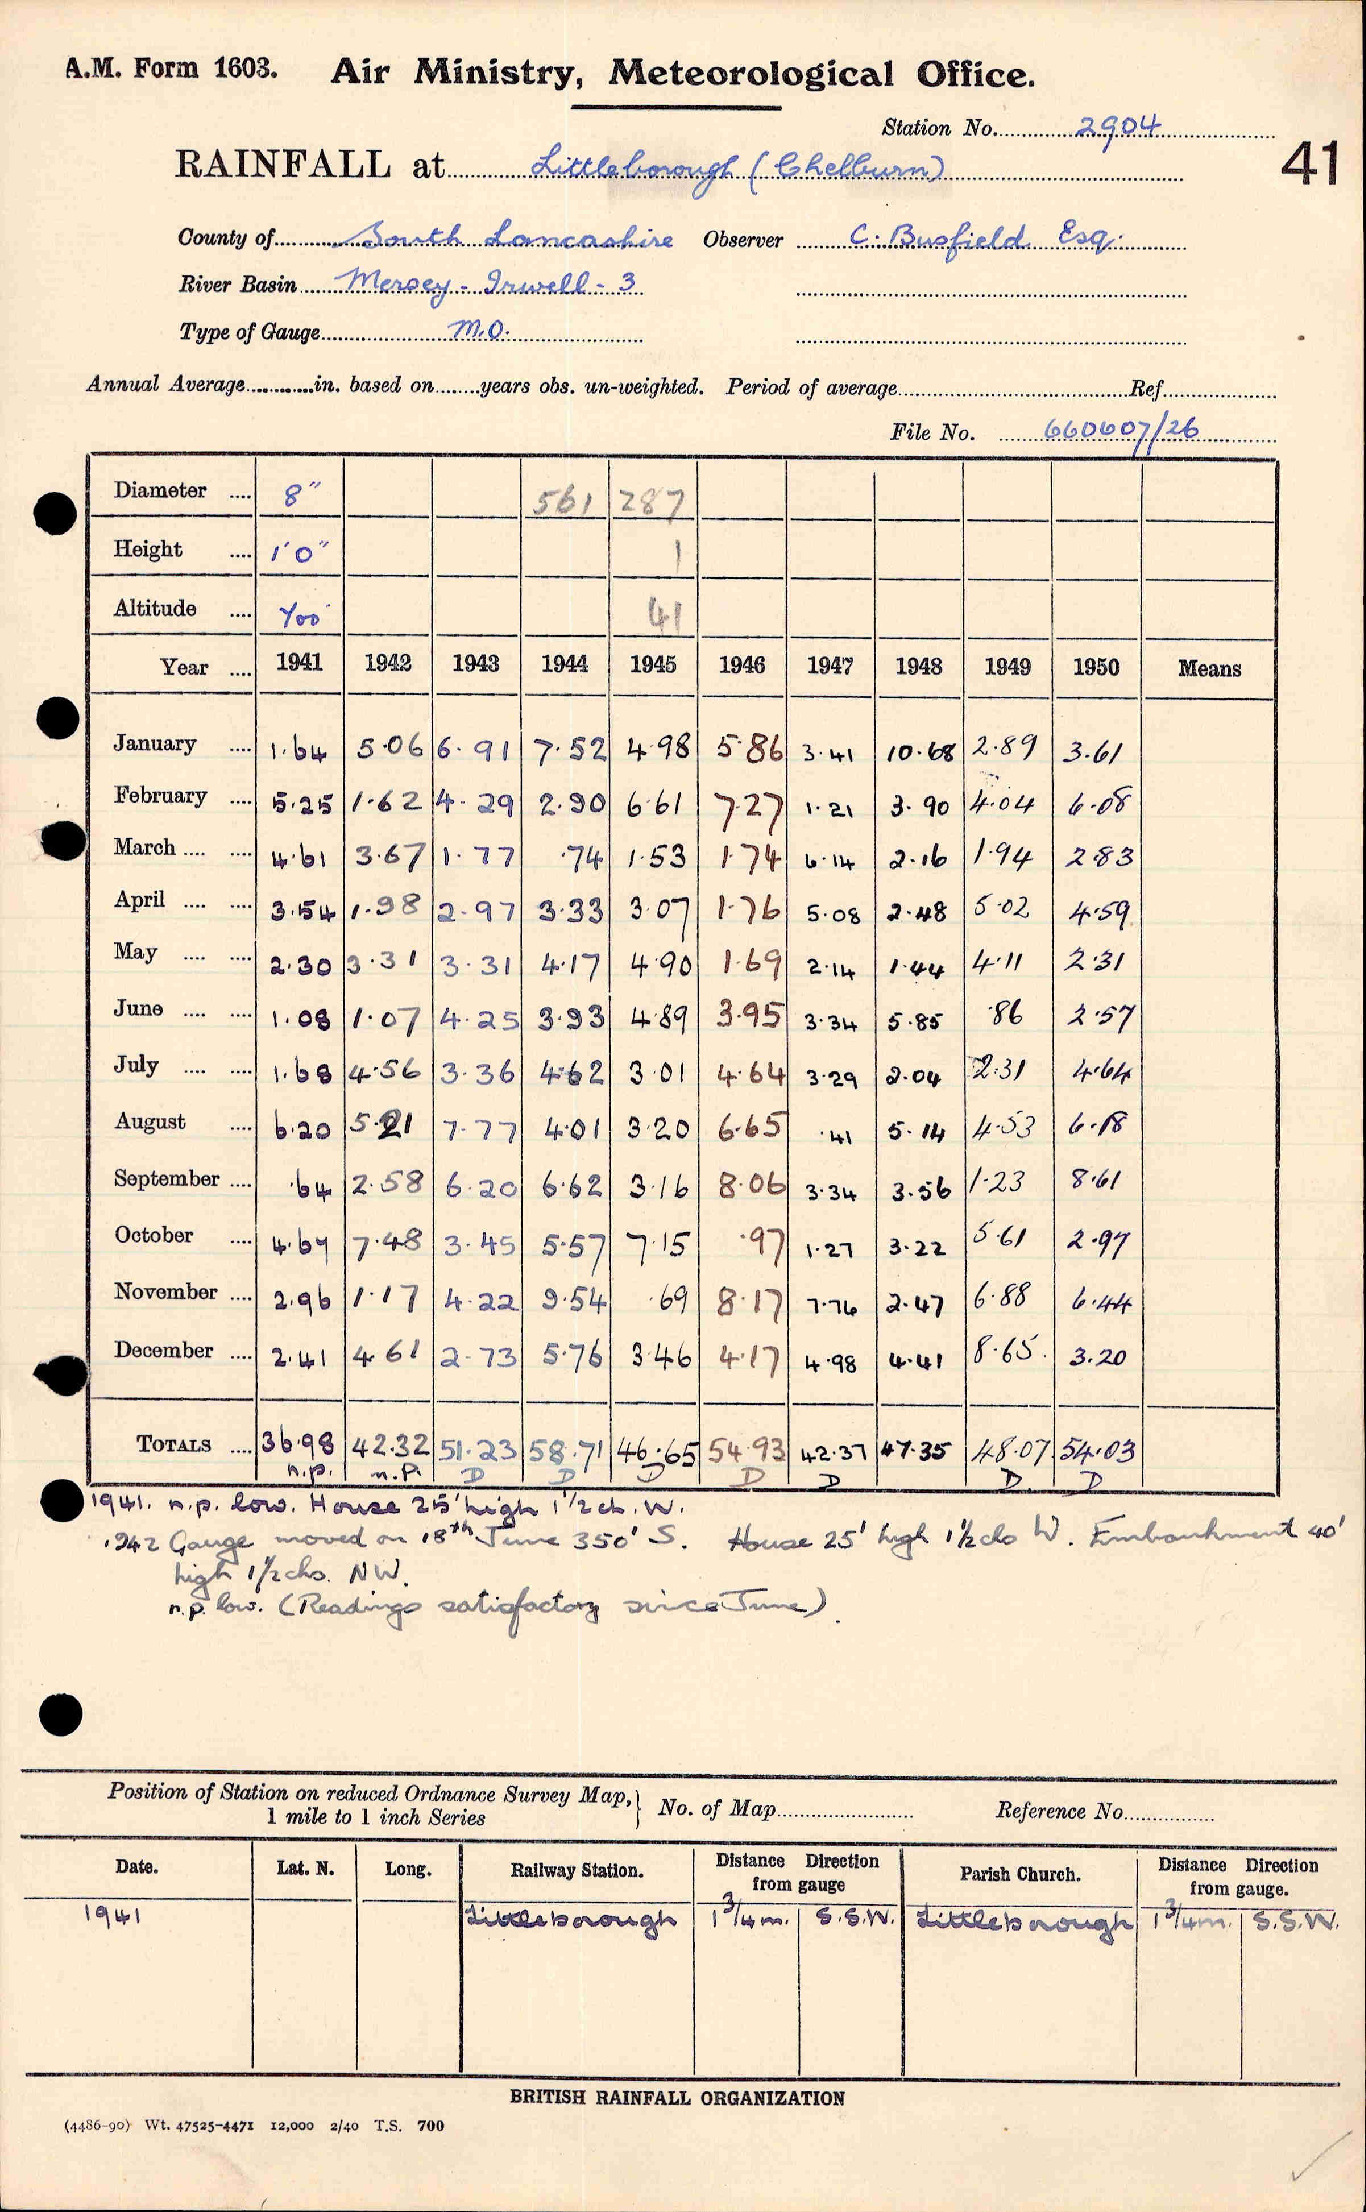 A.M. Form 1603. Air Ministry, Meteorological Office.
Station No. 2904
41
RAINFALL at Littleborough (Chelburn)
County of South Lancashire Observer C. Busfield Esq.
River Basin Mersey - Irwell - 3
Type of Gauge M.O.
Annual Average............in. based on........years obs. un-weighted. Period of average............Ref............
File No. 660607/26
Diameter .... 8" 561 287
Height .... 1'0" 1
Altitude .... 700' 41
Year .... 1941 1942 1943 1944 1945 1946 1947 1948 1949 1950 Means
January .... 1.64 5.06 6.91 7.52 4.98 5.86 3.41 10.68 2.89 3.61
February .... 5.25 1.62 4.29 2.90 6.61 7.27 1.21 3.90 4.04 6.08
March .... .... 4.61 3.67 1.77 .74 1.53 1.74 6.14 2.16 1.94 2.83
April .... .... 3.54 1.98 2.97 3.33 3.07 1.76 5.08 2.48 5.02 4.59
May .... .... 2.30 3.31 3.31 4.17 4.90 1.69 2.14 1.44 4.11 2.31
June .... .... 1.08 1.07 4.25 3.93 4.89 3.95 3.34 5.85 .86 2.57
July .... .... 1.68 4.56 3.36 4.62 3.01 4.64 3.29 2.04 2.31 4.64
August .... 6.20 5.21 7.77 4.01 3.20 6.65 .41 5.14 4.53 6.18
September .... .64 2.58 6.20 6.62 3.16 8.06 3.34 3.56 1.23 8.61
October .... 4.67 7.48 3.45 5.57 7.15 .97 1.27 3.22 5.61 2.97
November .... 2.96 1.17 4.22 9.54 .69 8.17 7.76 2.47 6.88 6.44
December .... 2.41 4.61 2.73 5.76 3.46 4.17 4.98 4.41 8.65 3.20
TOTALS .... 36.98 42.32 51.23 58.71 46.65 54.93 42.37 47.35 48.07 54.03
n.p. n.p. D D D D D D D
1941. n.p. low. House 25' high 1½ ch. W.
1942 Gauge moved on 18th June 350' S. House 25' high 1½ chs W. Embankment 40'
high 1½ chs. NW.
n.p. low. (Readings satisfactory since June).
Position of Station on reduced Ordnance Survey Map,} No. of Map............ Reference No............
1 mile to 1 inch Series
Date. Lat. N. Long. Railway Station. Distance Direction from gauge Parish Church. Distance Direction from gauge.
1941 Littleborough 1¾ m. S.S.W. Littleborough 1¾ m. S.S.W.
BRITISH RAINFALL ORGANIZATION
(4486-90) Wt. 47525-4471 12,000 2/40 T.S. 700